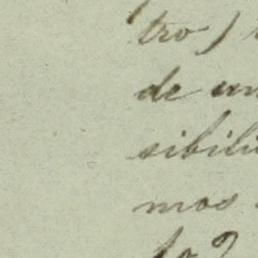 tro)
de un
sibili
mos